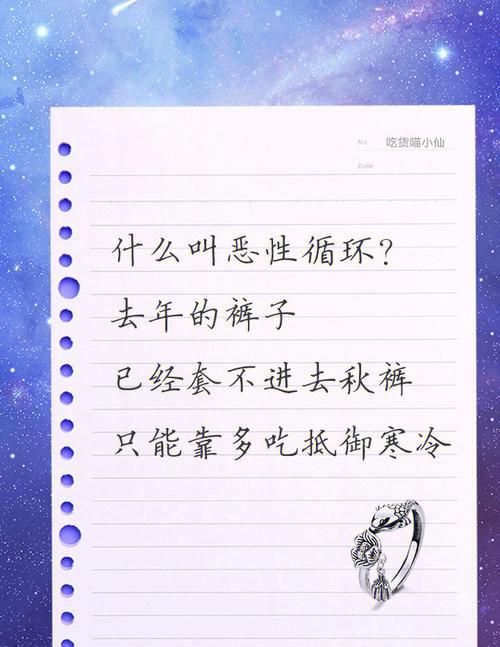 No 吃货喵小仙
Date
什么叫恶性循环?
去年的裤子
已经套不进去秋裤
只能靠多吃抵御寒冷